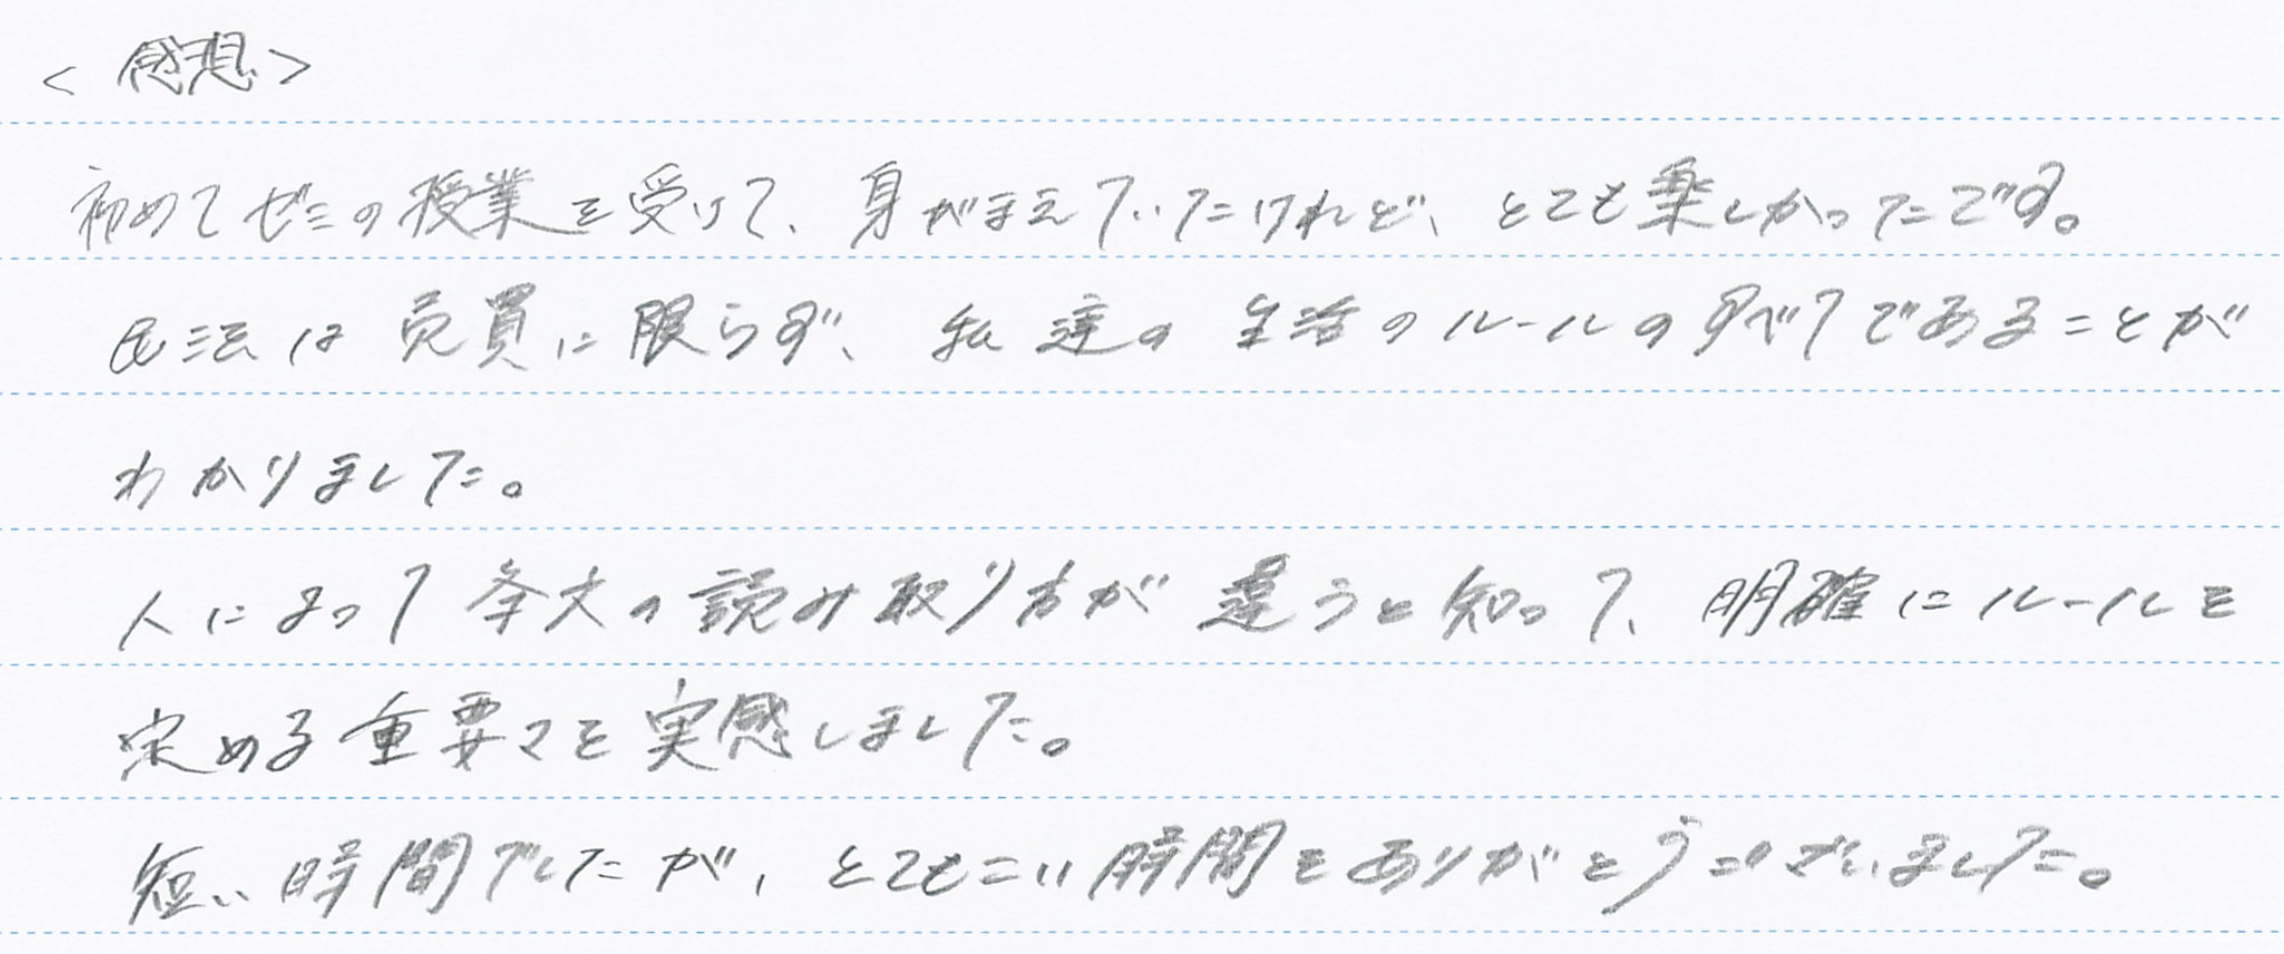 <感想>
初めてゼミの授業を受けて、身がまえていたけれど、とても楽しかったです。
民法は売買に限らず、私達の生活のルールのすべてであることが
わかりました。
人によって条文の読み取り方が違うと知って、明確にルールを
定める重要さを実感しました。
短い時間でしたが、とてもこい時間をありがとうございました。